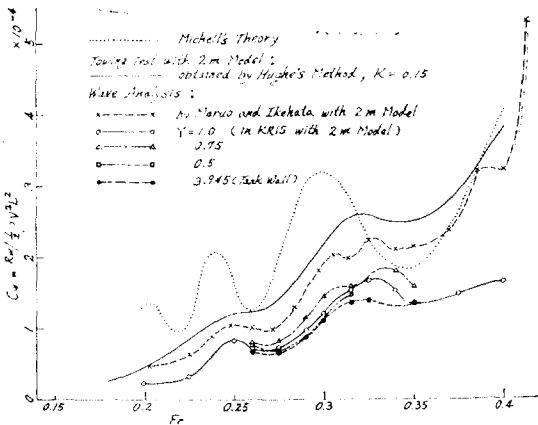 ×10⁻⁴
5
Michell's Theory
Towing Test with 2m Model :
obtained by Hughe's Method, K = 0.15
Wave Analysis :
by Maruo and Ikehata with 2m Model
4
Y = 1.0 (in KRIS with 2m Model)
0.75
0.5
3
3.945 (Tank Wall)
2
1
0
0.15
0.2
0.25
0.3
0.35
0.4
Fr